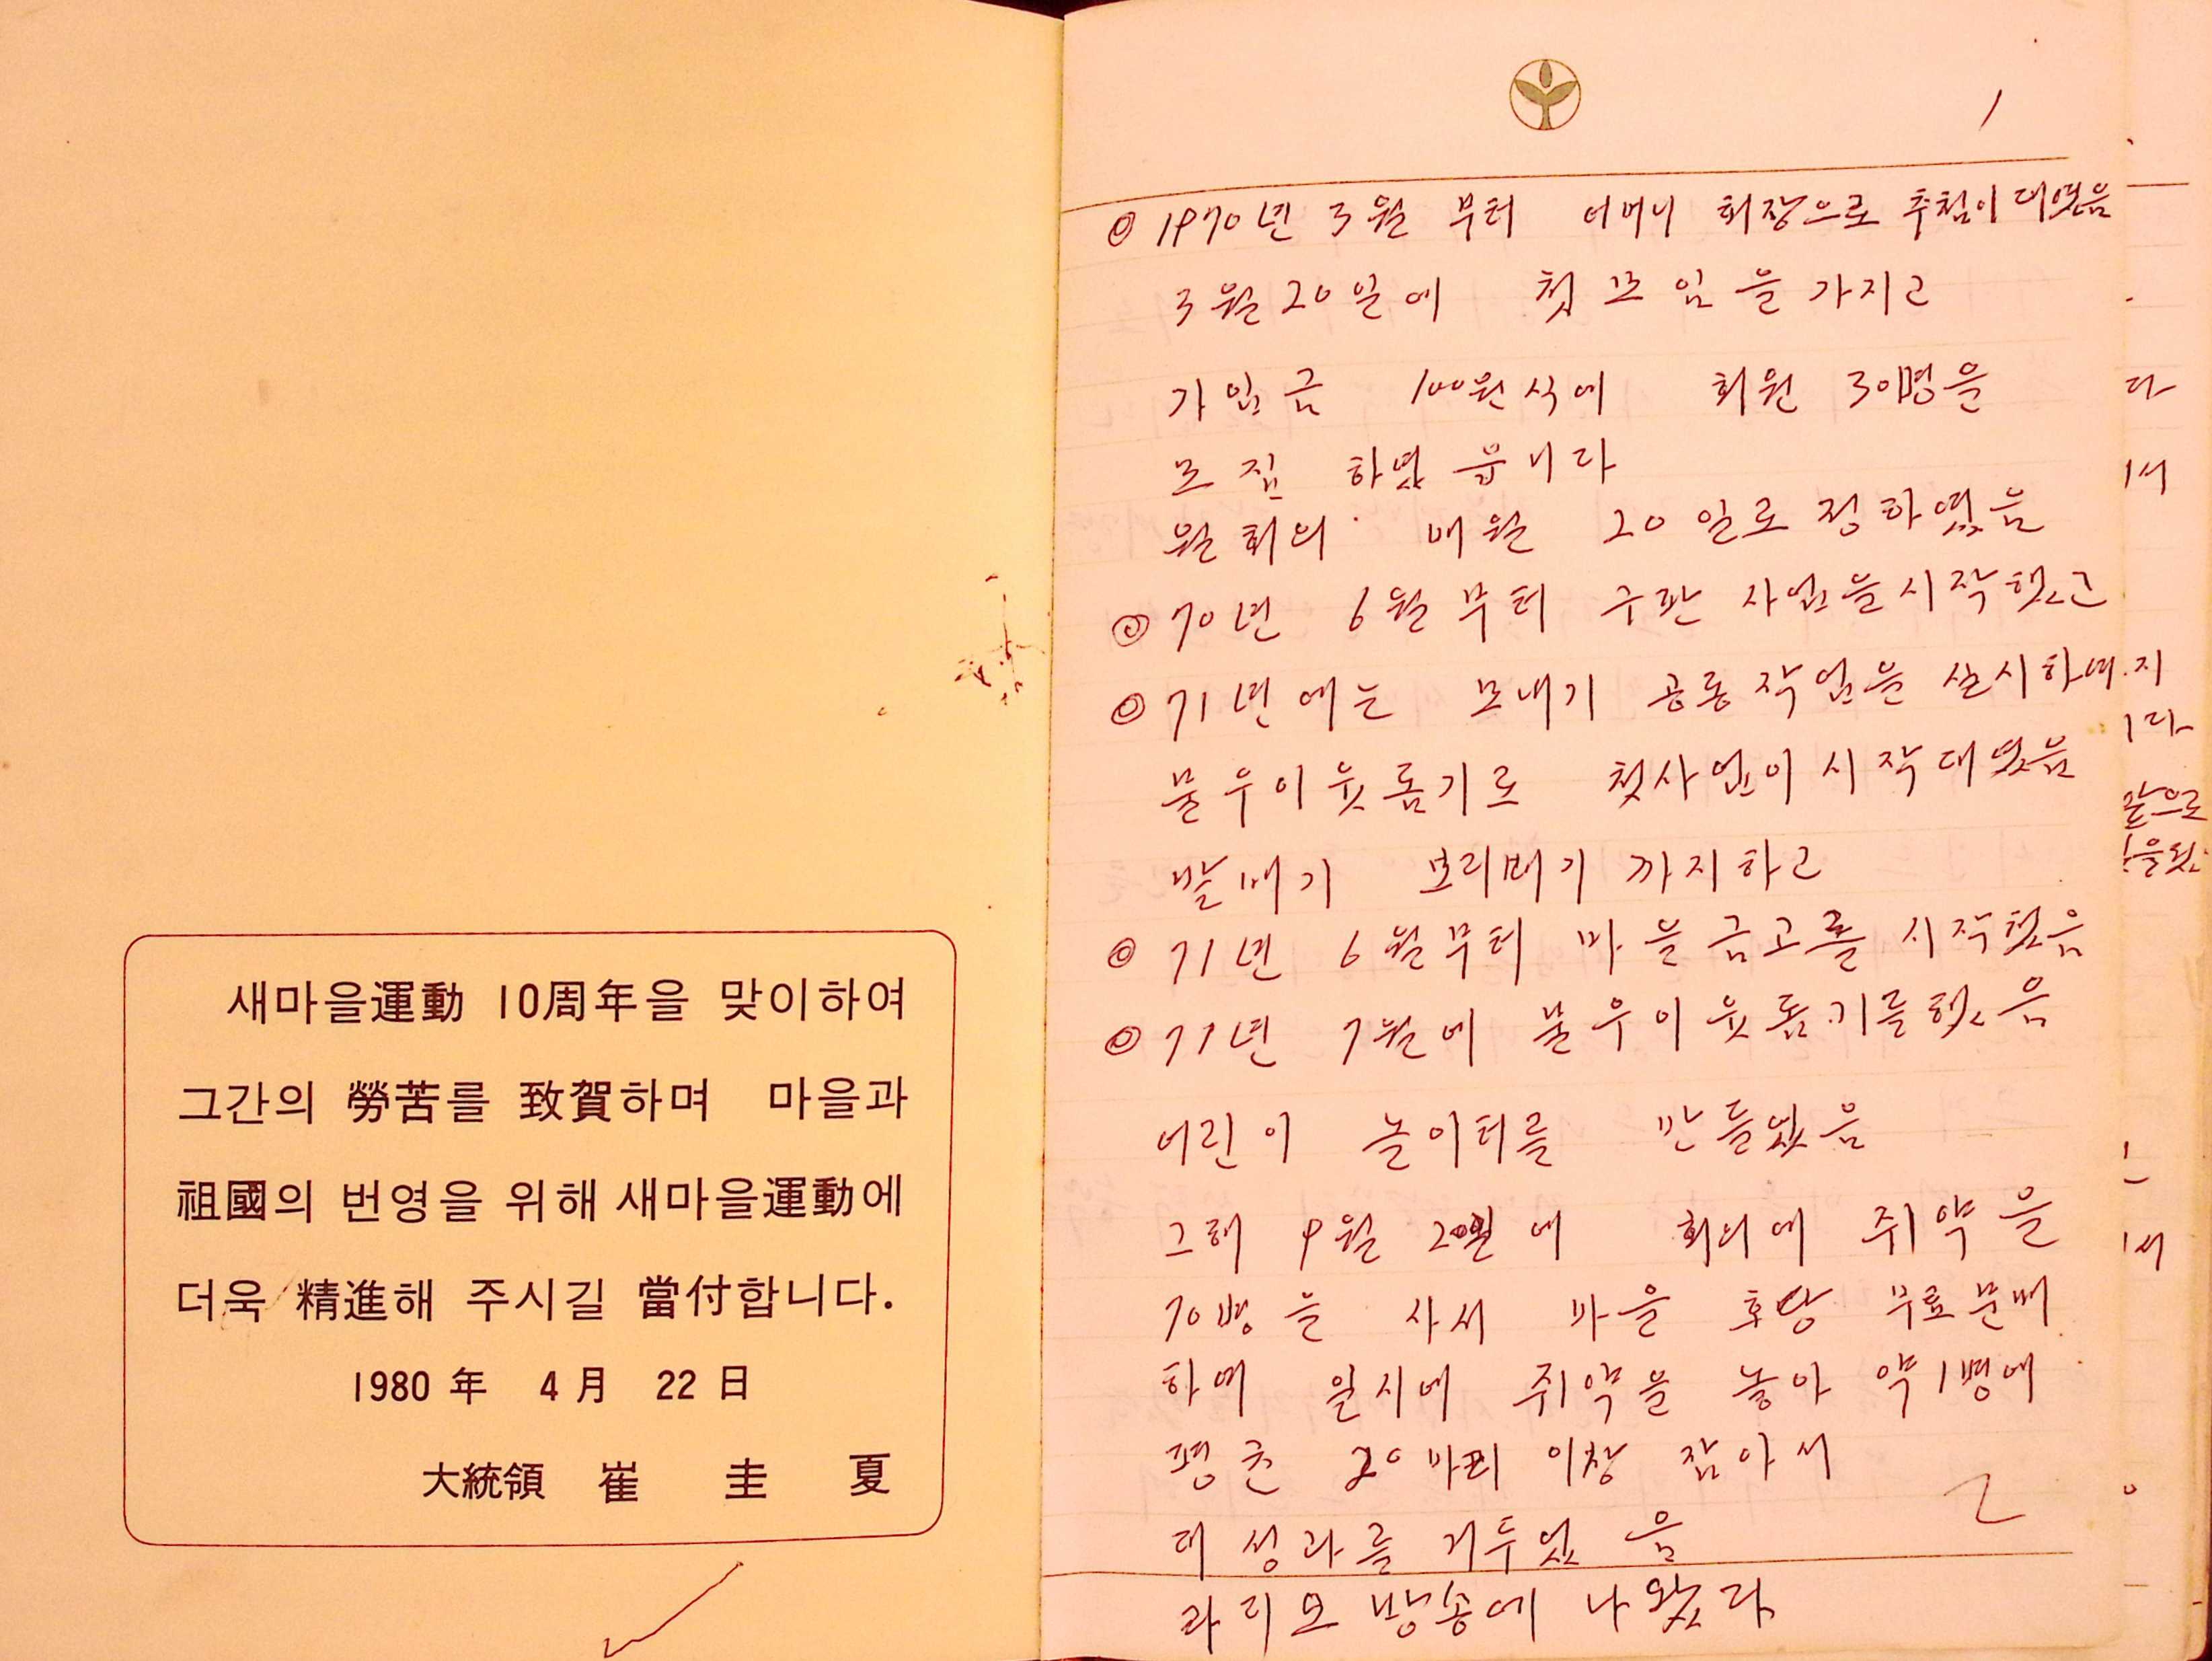 새마을運動 10周年을 맞이하여
그간의 勞苦를 致賀하며 마을과
祖國의 번영을 위해 새마을運動에
더욱 精進해 주시길 當付합니다.
1980 年 4 月 22 日
大統領 崔 圭 夏
1
◎ 1970년 3월 부터 어머니 회장으로 추첨이 대였음
3월 20일에 첫 모임을 가지고
가입금 100원식에 회원 30명을
모집 하였읍니다
월회의 매월 20일로 정하였음
◎ 70년 6월 부터 구판 사업을 시작했고
◎ 71년에는 모내기 공동작업을 실시하여
불우이웃돕기로 첫사업이 시작대였음
밭매기 보리베기 까지하고
◎ 71년 6월부터 마을금고를 시작했음
◎ 71년 7월에 불우이웃돕기를했음
어린이 놀이터를 만들었음
그해 9월 20일에 회의에 쥐약을
70병을 사서 마을 호당 무료분배
하여 일시에 쥐약을 놓아 약1병에
평균 20마리 이상 잡아서
대 성과를 거두었음
라디오 방송에 나왔다